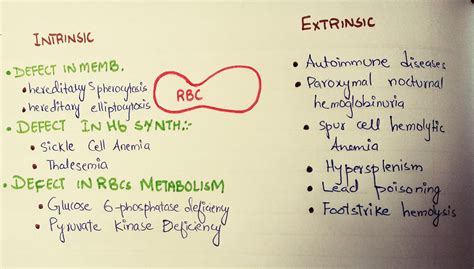 INTRINSIC
• DEFECT IN MEMB.
• hereditary Spherocytosis
• hereditary elliptocytosis
RBC
• DEFECT IN Hb SYNTH:-
• Sickle Cell Anemia
• Thalesemia
• DEFECT IN RBCs METABOLISM
• Glucose 6-phosphatase deficiency
• Pyruvate Kinase Deficiency
EXTRINSIC
• Autoimmune diseases
• Paroxymal nocturnal
hemoglobinuria
• Spur cell hemolytic
Anemia
• Hypersplenism
• Lead poisoning
• Footstrike hemolysis